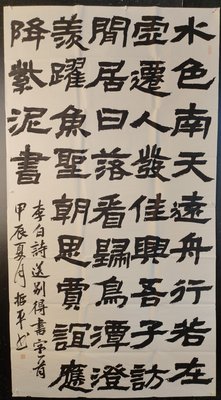 水色南天遠舟行若在
虛遷人發佳興吾子訪
閒居日落看歸鳥潭澄
羨躍魚聖朝思賈誼應
降紫泥書
李白詩送別得書字首
甲辰夏月